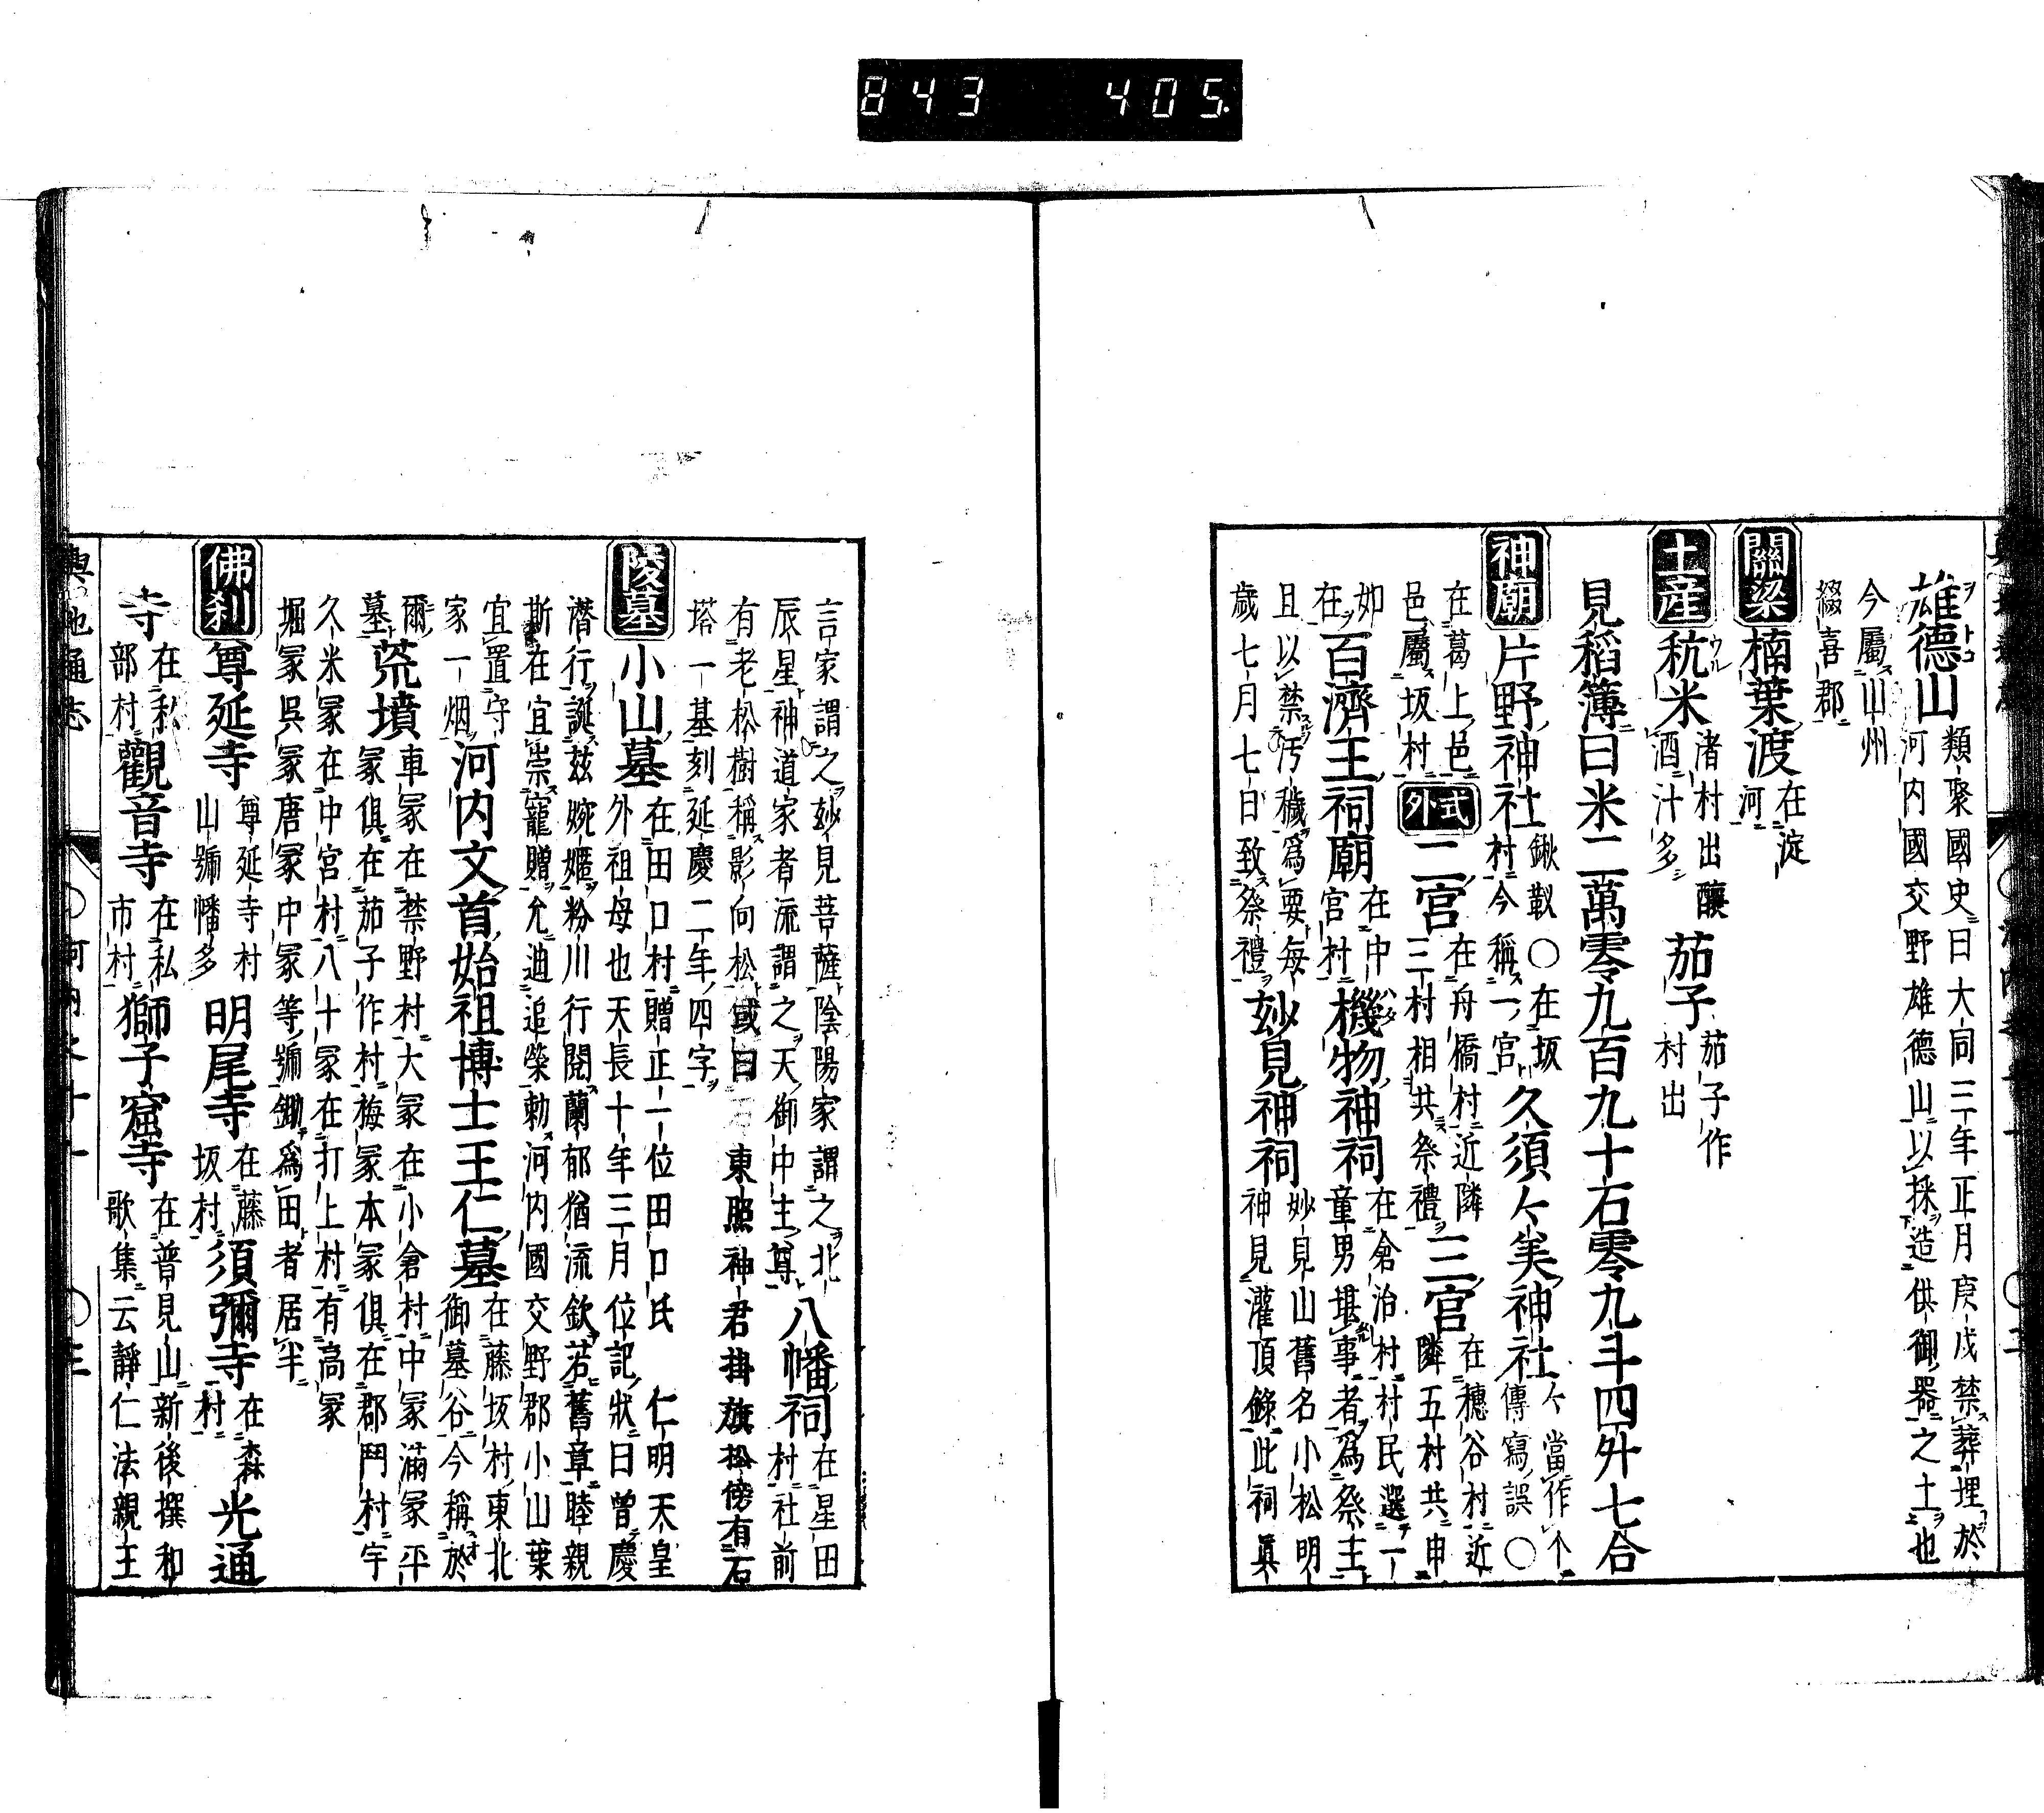 843 405.
雄德山 類聚國史曰大同三年正月庚戌禁葬埋於
河内國交野雄德山以採造供御器之土也
今屬山州
綴喜郡
關梁 楠葉渡 在淀
河
土産 秔米 渚村出釀
酒汁多 茄子 茄子作
村出
見稻簿曰米二萬零九百九十石零九斗四升七合
神廟 片野神社 鍬靫○在坂
村今稱一宮 久須々美神社 々當作个
傳寫誤○
在葛上邑
邑屬坂村 式外 二宮 在舟橋村近隣
三村相共祭禮 三宮 在穗谷村近
隣五村共申
如
在 百濟王祠廟 在中
宮村 機物神祠 在倉治村村民選一
童男堪事者爲祭主
且以禁汚穢爲要每
歳七月七日致祭禮 妙見神祠 妙見山舊名小松明
神見灌頂錄此祠眞
言家謂之妙見菩薩陰陽家謂之北
辰星神道家者流謂之天御中主尊 八幡祠 在星田
村社前
有老松樹稱影向松或曰 東照神君掛旗松傍有石
塔一基刻延慶二年四字
陵墓 小山墓 在田口村贈正一位田口氏 仁明天皇
外祖母也天長十年三月位記狀曰曾慶
潛行誕茲婉嫕粉川行閲蘭郁猶流欽若舊章睦親
斯在宜崇寵贈允迪追榮勅河内國交野郡小山葉
宜置守
家一烟 河内文首始祖博士王仁墓 在藤坂村東北
御墓谷今稱於
爾
墓 荒墳 車冢在禁野村大冢在小倉村中冢滿冢平
冢俱在茄子作村梅冢本冢俱在郡門村宇
久米冢在中宮村八十冢在打上村有高冢
堀冢呉冢唐冢中冢等號鋤爲田者居半
佛刹 尊延寺 尊延寺村
山號幡多 明尾寺 在藤
坂村 須彌寺 在森
村 光通
寺 在私
部村 觀音寺 在私
市村 獅子窟寺 在普見山新後撰和
歌集云靜仁法親王
輿地通志